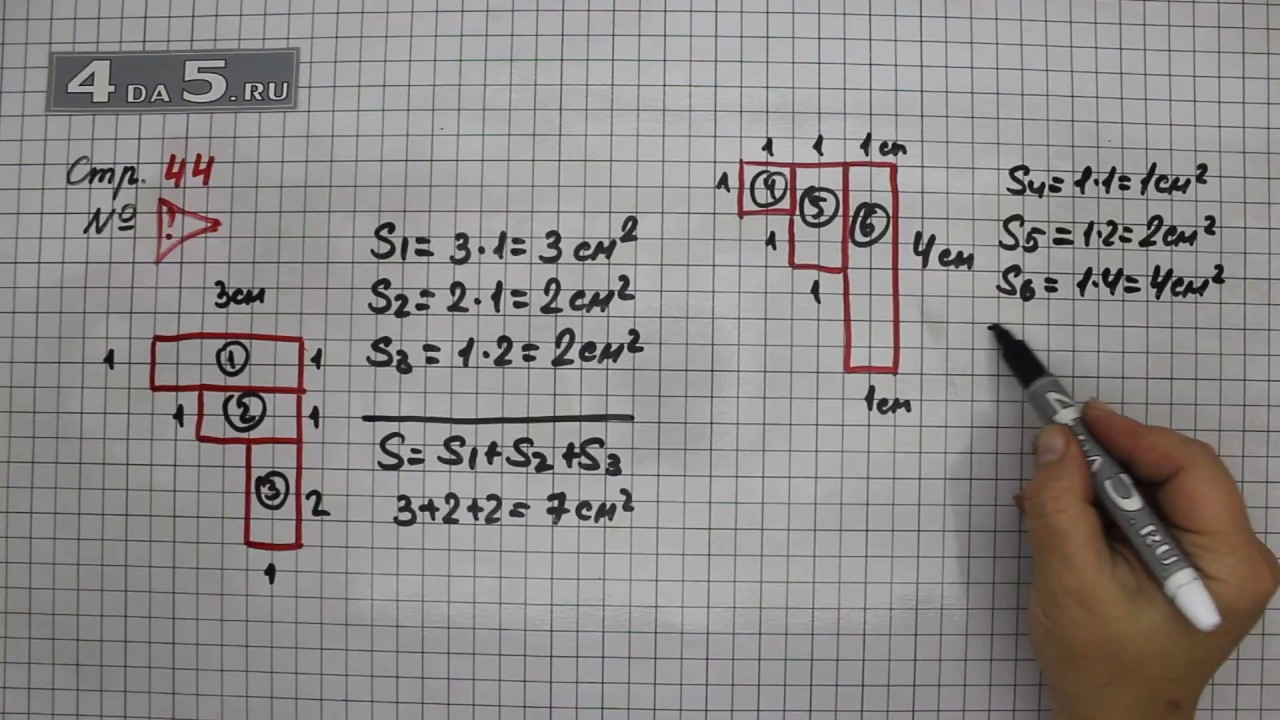 4 DA 5.RU
Стр. 44
№ !?
3см
1 ① 1
1 ② 1
③ 2
1
S1 = 3·1 = 3 см²
S2 = 2·1 = 2 см²
S3 = 1·2 = 2 см²
S = S1+S2+S3
3+2+2 = 7 см²
1 1 1 см
1 ④ ⑤ ⑥
1 4 см
1
1см
S4 = 1·1 = 1см²
S5 = 1·2 = 2см²
S6 = 1·4 = 4см²
4 DA 5.RU